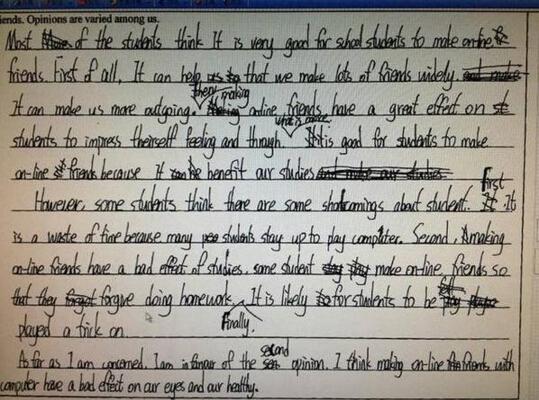 iends. Opinions are varied among us.
Most of the students think It is very good for school students to make on-line
friends. First of all, It can help that we make lots of friends widely.
It can make us more outgoing. Then, making on-line friends have a great effect on
students to impress theirself feeling and through. What is more, It is good for students to make
on-line friends because It can be benefit our studies
However, some students think there are some shortcomings about student. First, It
is a waste of time because many students stay up to play computer. Second, making
on-line friends have a bad effect of studies, some student make on-line friends so
that they forgive doing homework. Finally, It is likely for students to be
played a trick on.
As far as I am concerned, I am in favour of the second opinion. I think making on-line friends with
computer have a bad effect on our eyes and our healthy.